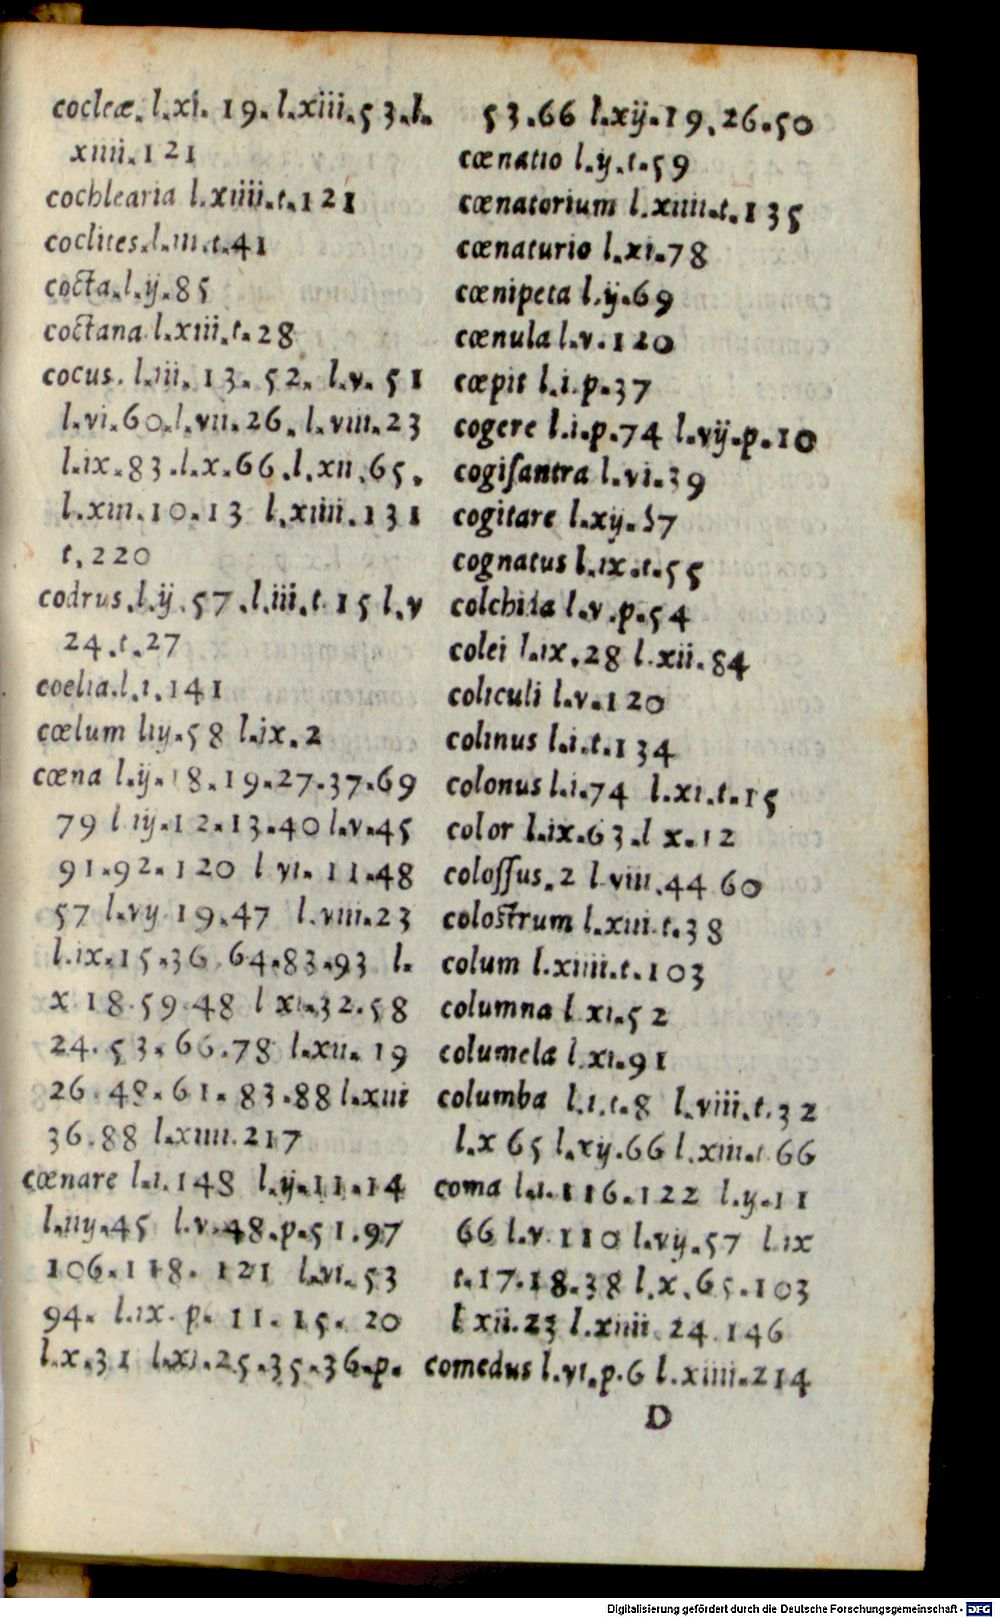 cocleæ. l.xi. 19. l.xiii.53.l.
xiiii.121
cochlearia l.xiiii.t.121
coclites.l.iii.t.41
cocta.l.ij.85
coctana l.xiii.t.28
cocus. l.iii. 13. 52. l.v. 51
l.vi.60.l.vii.26. l.viii.23
l.ix.83.l.x.66.l.xii.65.
l.xiii.10.13 l.xiiii.131
t.220
codrus.l.ij.57.l.iii.t.15 l.v
24.t.27
coelia.l.i.141
cœlum liij.58 l.ix.2
cœna l.ij.18.19.27.37.69
79 l iij.12.13.40 l.v.45
91.92.120 l vi. 11.48
57 l.vij 19.47 l.viii.23
l.ix.15.36.64.83.93 l.
x 18.59.48 l xi.32.58
24.53.66.78 l.xii. 19
26.48.61.83.88 l.xiii
36.88 l.xiiii.217
cœnare l.i.148 l.ij.11.14
l.iiij.45 l.v.48.p.51.97
106.118. 121 l.vi.53
94. l.ix. p. 11. 15. 20
l.x.31 l.xi.25.35.36.p.
53.66 l.xij.19.26.50
cœnatio l.ij.t.59
cœnatorium l.xiiii.t.135
cœnaturio l.xi.78
cœnipeta l.ij.69
cœnula l.v.120
cœpit l.i.p.37
cogere l.i.p.74 l.vij.p.10
cogiſantra l.vi.39
cogitare l.xij.57
cognatus l.ix.t.55
colchida l.v.p.54
colei l.ix.28 l.xii.84
coliculi l.v.120
colinus l.i.t.134
colonus l.i.74 l.xi.t.15
color l.ix.63.l x.12
coloſſus.2 l viii.44 60
colostrum l.xiii.t.38
colum l.xiiii.t.103
columna l xi.52
columela l xi.91
columba l.i.t.8 l.viii.t.32
l.x 65 l.xij.66 l.xiii.t 66
coma l.i.116.122 l.ij.11
66 l.v.110 l.vij.57 l ix
t.17.18.38 l.x.65.103
l xii.23 l.xiiii 24.146
comedus l.vi.p.6 l.xiiii.214
D
Digitalisierung gefördert durch die Deutsche Forschungsgemeinschaft - DFG